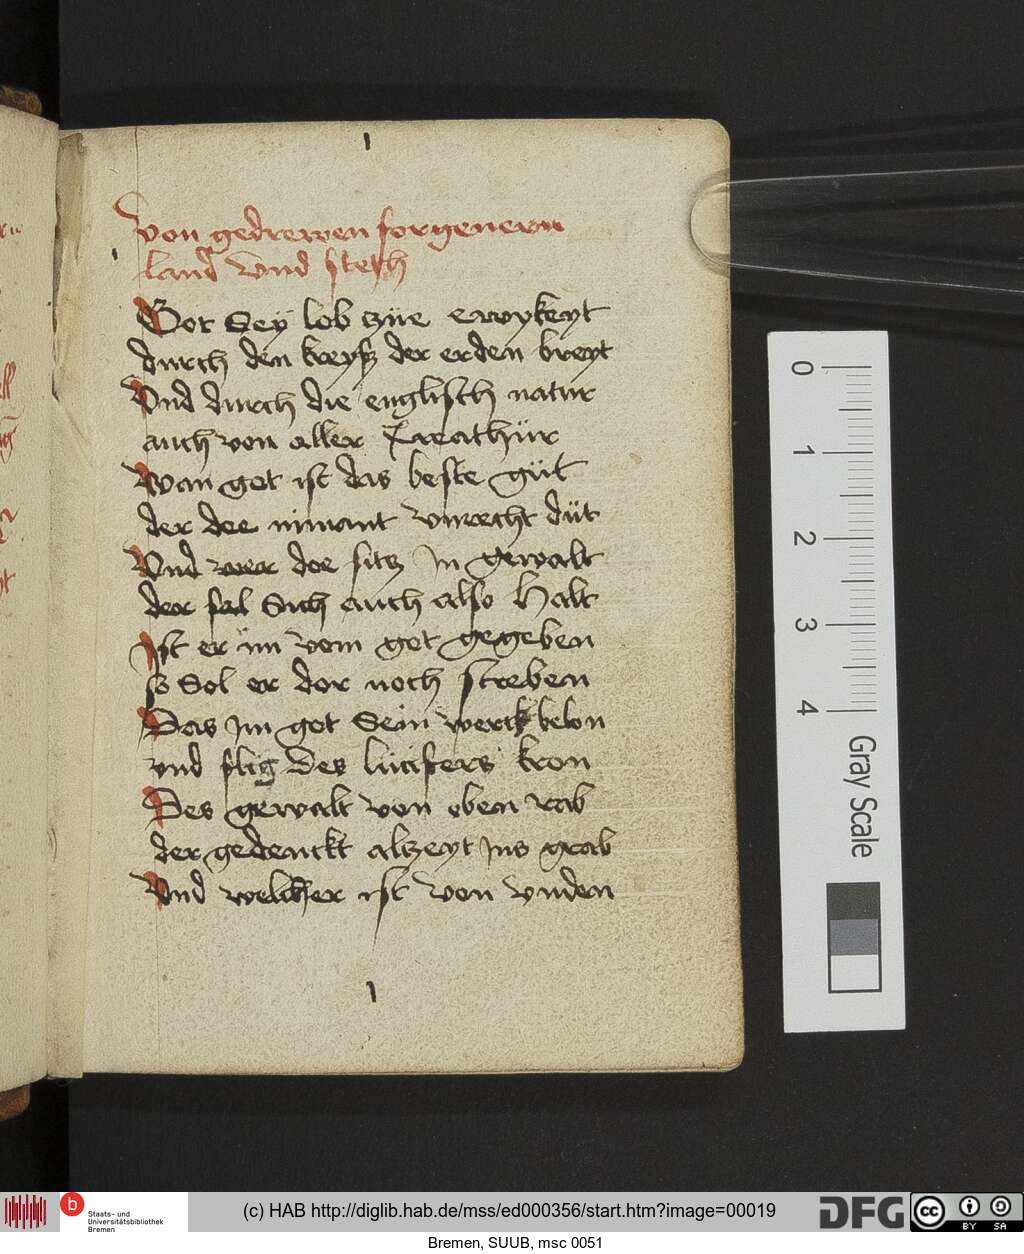 von gedrewen forgenern
land vnd steth
Got Sey lob zue ewykeyt
durch den kreysz der erden breyt
Vnd durch die englisch natur
auch von aller Creathür
Wan got ist das beste güt
der dee nimant vnrecht düt
Vnd wer doe sitz Jn gewalt
der sal Sich auch also halt
Jst er im vom got gegeben
so Sol er dor noch streben
Das Jm got Sein werck belon
vnd flig des lücifers kron
Des gewalt von oben rab
der gedenckt alzeyt Jns grab
Vnd welcher ist von vnden
0
1
2
3
4
Gray Scale
b
Staats- und
Universitätsbibliothek
Bremen
(c) HAB http://diglib.hab.de/mss/ed000356/start.htm?image=00019
DFG
cc
BY SA
Bremen, SUUB, msc 0051